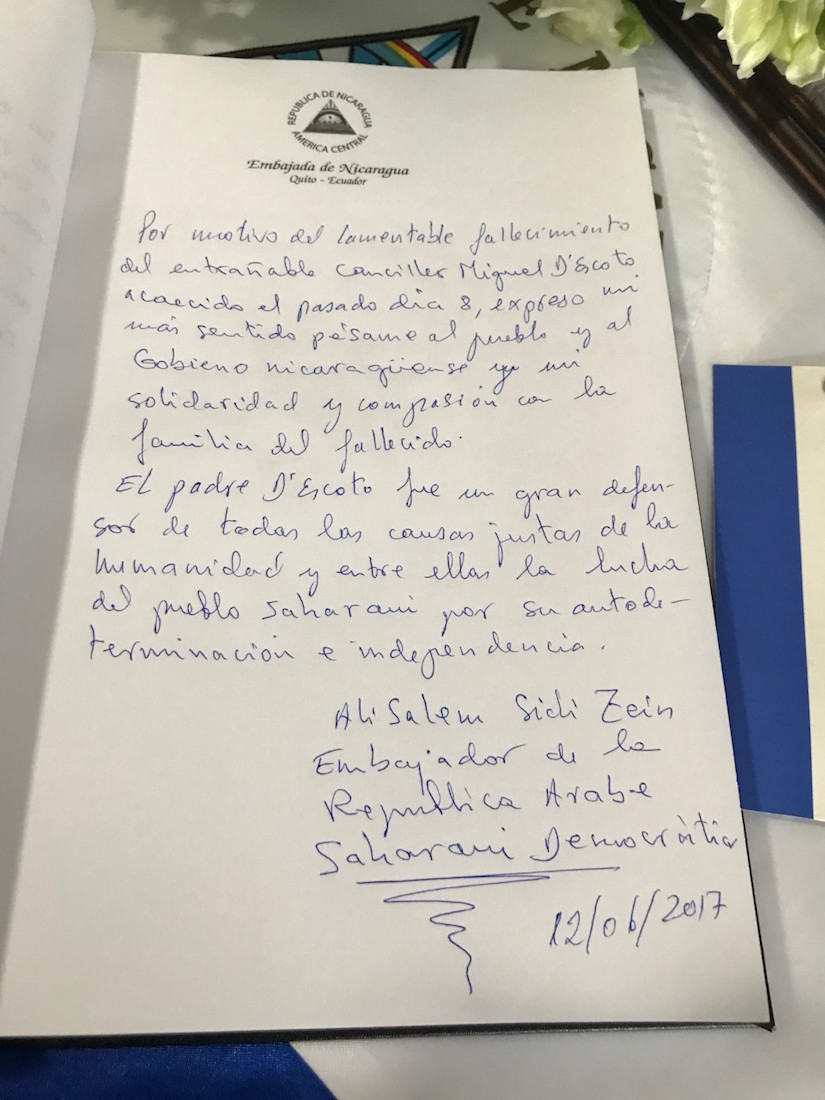 REPUBLICA DE NICARAGUA
AMERICA CENTRAL
Embajada de Nicaragua
Quito - Ecuador
Por motivo del lamentable fallecimiento
del entrañable Canciller Miguel D'Escoto
acaecido el pasado día 8, expreso mi
más sentido pésame al pueblo y al
Gobieno nicaragüense y mi
solidaridad y compasión con la
familia del fallecido.
El padre D'Escoto fue un gran defen-
sor de todas las causas justas de la
humanidad y entre ellas la lucha
del pueblo saharaui por su autode-
terminación e independencia.
Ali Salem Sidi Zein
Embajador de la
República Arabe
Saharaui Democràtica
12/06/2017